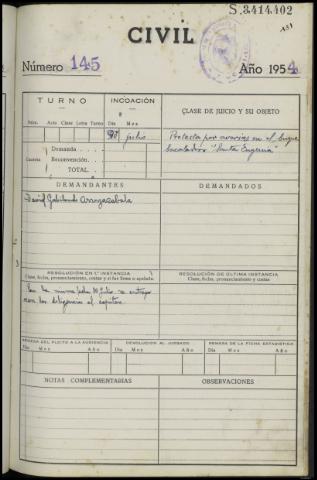 S.3.414.402
CIVIL
Número 145 Año 1954
TURNO INCOACIÓN CLASE DE JUICIO Y SU OBJETO
Núm. Acto Clase Letra Turno Día Mes
julio Protesta por averias en el buque
Demanda "Santa Eugenia"
Cuantía Reconvención
TOTAL
DEMANDANTES DEMANDADOS
David Gabilondo
RESOLUCIÓN EN 1.ª INSTANCIA RESOLUCIÓN DE ÚLTIMA INSTANCIA
Clase, fecha, pronunciamiento, costas y si fue firme o apelada. Clase, fecha, pronunciamiento y costas
En la misma fecha julio se
las diligencias al capitan
REMESA DEL PLEITO A LA AUDIENCIA DEVOLUCIÓN AL JUZGADO REMESA DE LA FICHA ESTADÍSTICA
Día Mes Año Día Mes Año Día Mes Año
NOTAS COMPLEMENTARIAS OBSERVACIONES